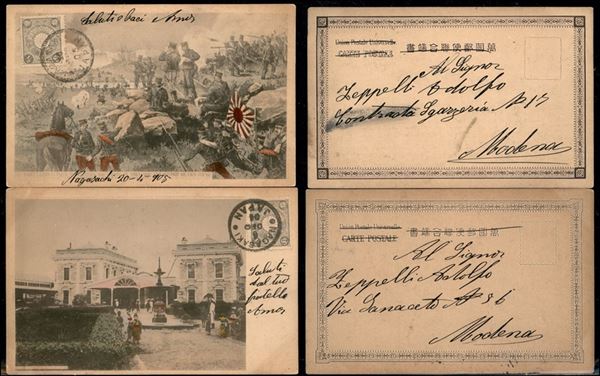 Saluti e baci Amos
Nagasachi 20-4-905
Union Postale Universelle
CARTE POSTALE
萬國郵便聯合端書
Al Signor
Zeppelli Adolfo
Contrada Sgarzeria N 15
Modena
NAGASAKI
JAPAN
Saluti
dal tuo
fratello
Amos
Union Postale Universelle
CARTE POSTALE
萬國郵便聯合端書
Al Signor
Zeppelli Adolfo
Via Sanaceto N 36
Modena